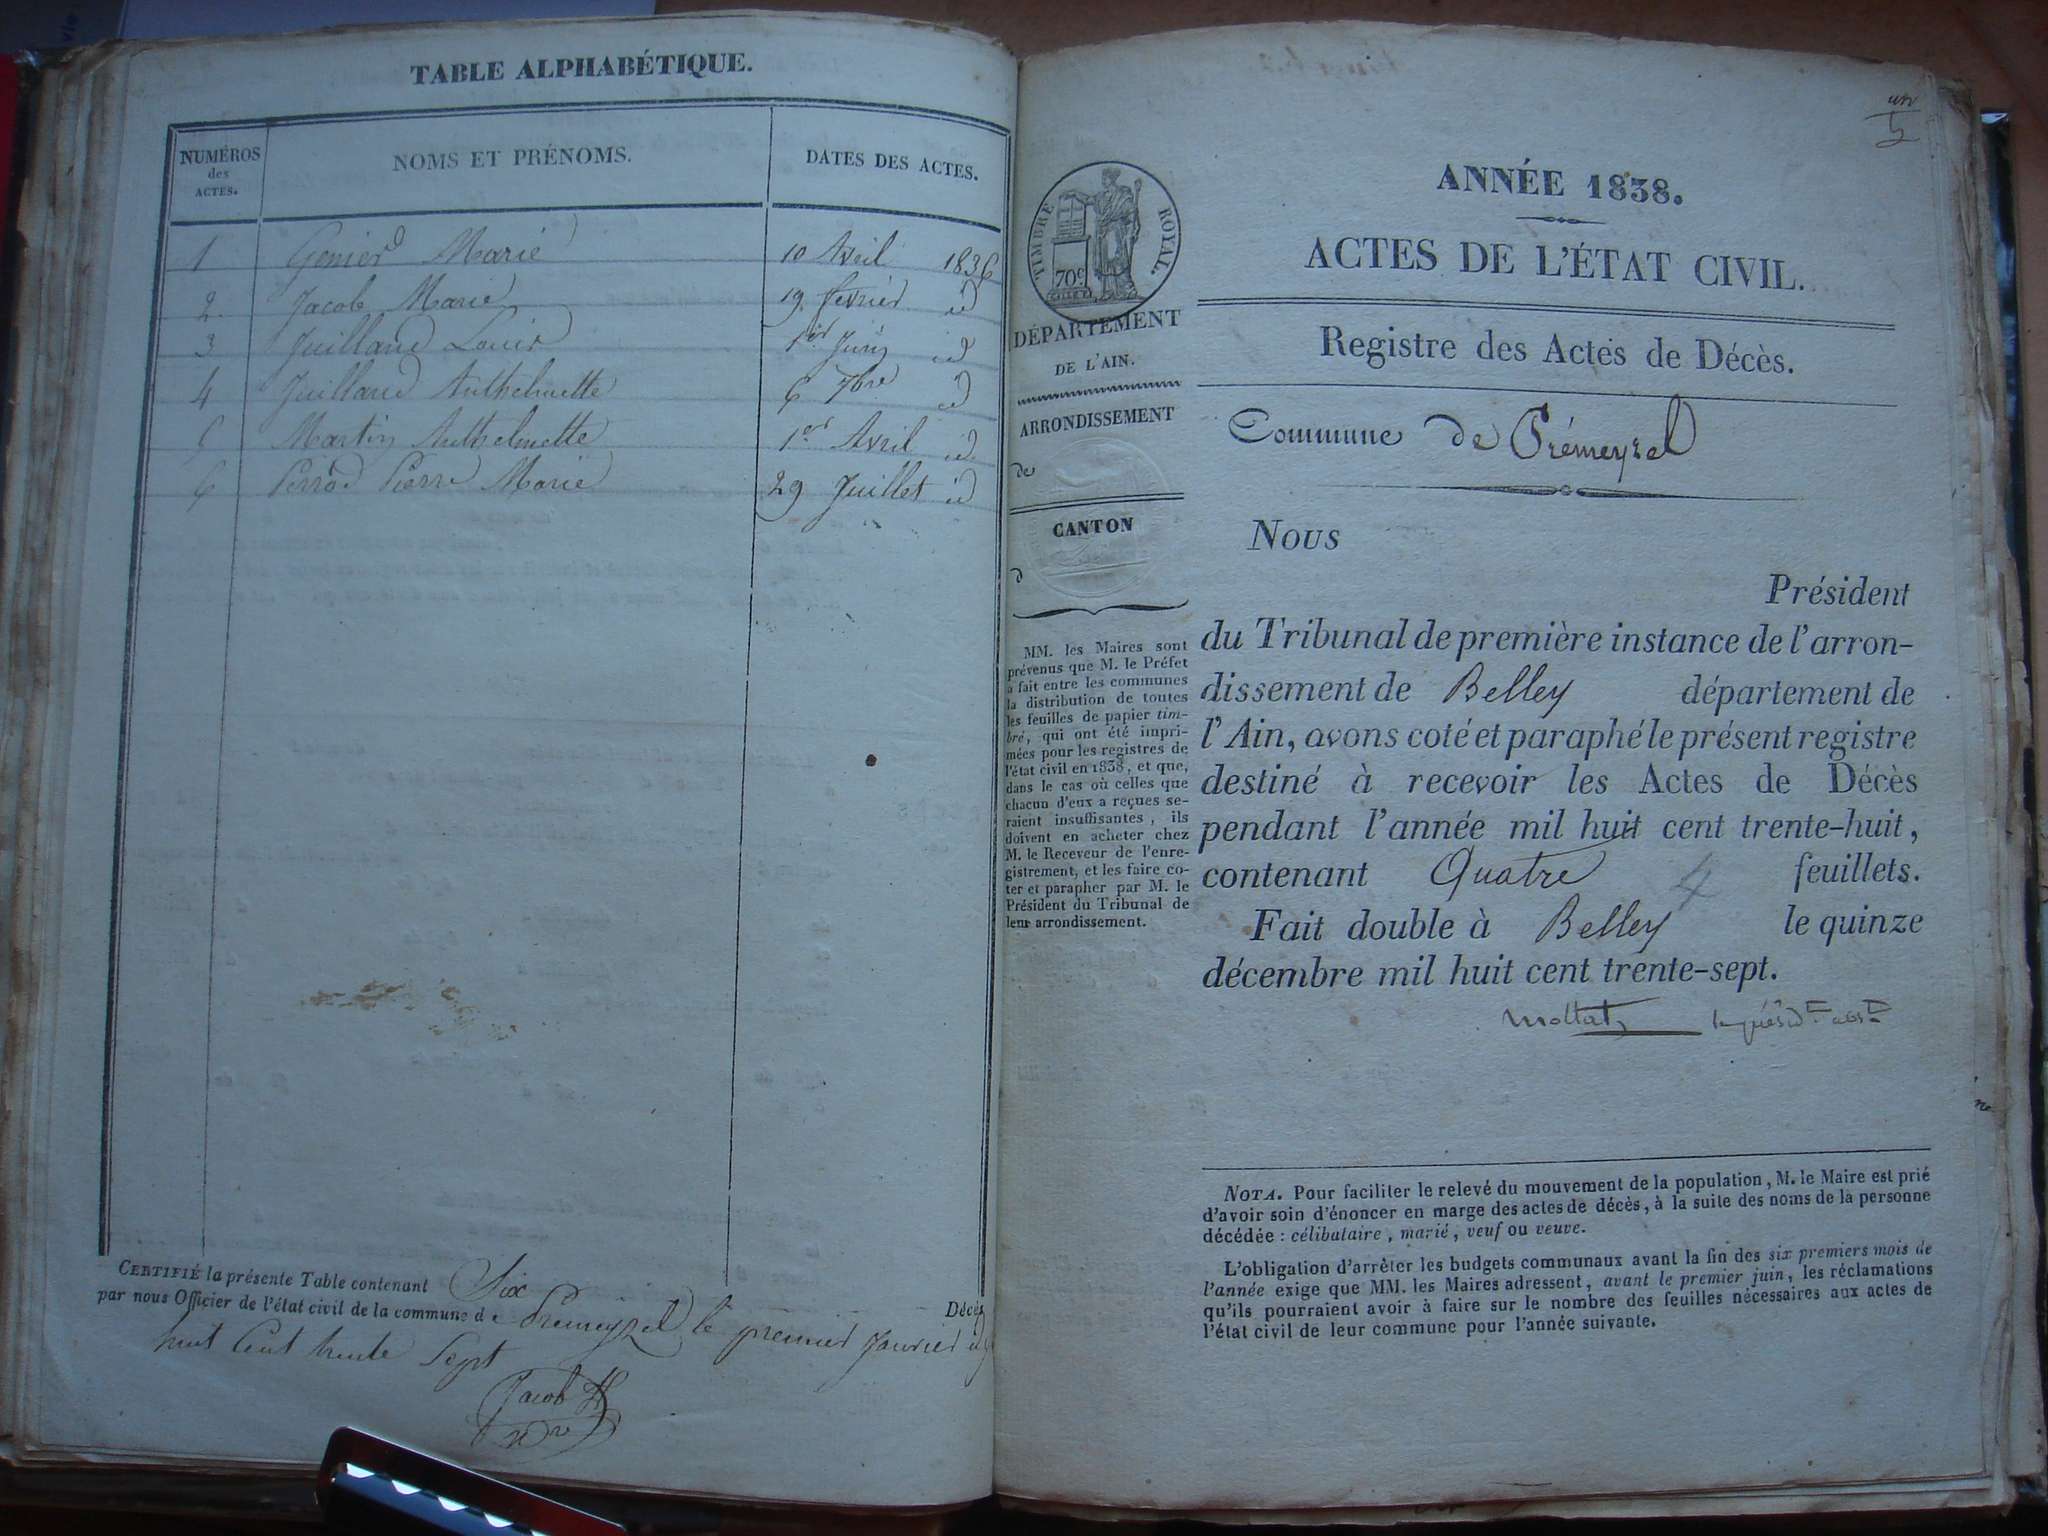 TABLE ALPHABÉTIQUE.
NUMÉROS des ACTES. NOMS ET PRÉNOMS. DATES DES ACTES.
1 Marie 10 Avril 1836
2. Jacob Marie 19 fevrier id
3 Juilland Louis 1er Juin id
4 Juilland Anthelmette 6 7bre id
5 Martin Anthelmette 1er Avril id
6 Perrod Pierre Marie 29 Juillet id
CERTIFIÉ la présente Table contenant Six Décès
par nous Officier de l'état civil de la commune de Prémeyzel le premier Janvier
huit cent trente sept
Jacob
un
TIMBRE ROYAL.
70c
DÉPARTEMENT
DE L'AIN.
ARRONDISSEMENT
de
CANTON
d
MM. les Maires sont
prévenus que M. le Préfet
a fait entre les communes
la distribution de toutes
les feuilles de papier tim-
bré, qui ont été impri-
mées pour les registres de
l'état civil en 1838, et que,
dans le cas où celles que
chacun d'eux a reçues se-
raient insuffisantes, ils
doivent en acheter chez
M. le Receveur de l'enre-
gistrement, et les faire co-
ter et parapher par M. le
Président du Tribunal de
leur arrondissement.
ANNÉE 1838.
ACTES DE L'ÉTAT CIVIL.
Registre des Actes de Décès.
Commune de Prémeyzel
NOUS
Président
du Tribunal de première instance de l'arron-
dissement de Belley département de
l'Ain, avons coté et paraphé le présent registre
destiné à recevoir les Actes de Décès
pendant l'année mil huit cent trente-huit,
contenant Quatre 4 feuillets.
Fait double à Belley le quinze
décembre mil huit cent trente-sept.
NOTA. Pour faciliter le relevé du mouvement de la population, M. le Maire est prié
d'avoir soin d'énoncer en marge des actes de décès, à la suite des noms de la personne
décédée : célibataire, marié, veuf ou veuve.
L'obligation d'arrêter les budgets communaux avant la fin des six premiers mois de
l'année exige que MM. les Maires adressent, avant le premier juin, les réclamations
qu'ils pourraient avoir à faire sur le nombre des feuilles nécessaires aux actes de
l'état civil de leur commune pour l'année suivante.